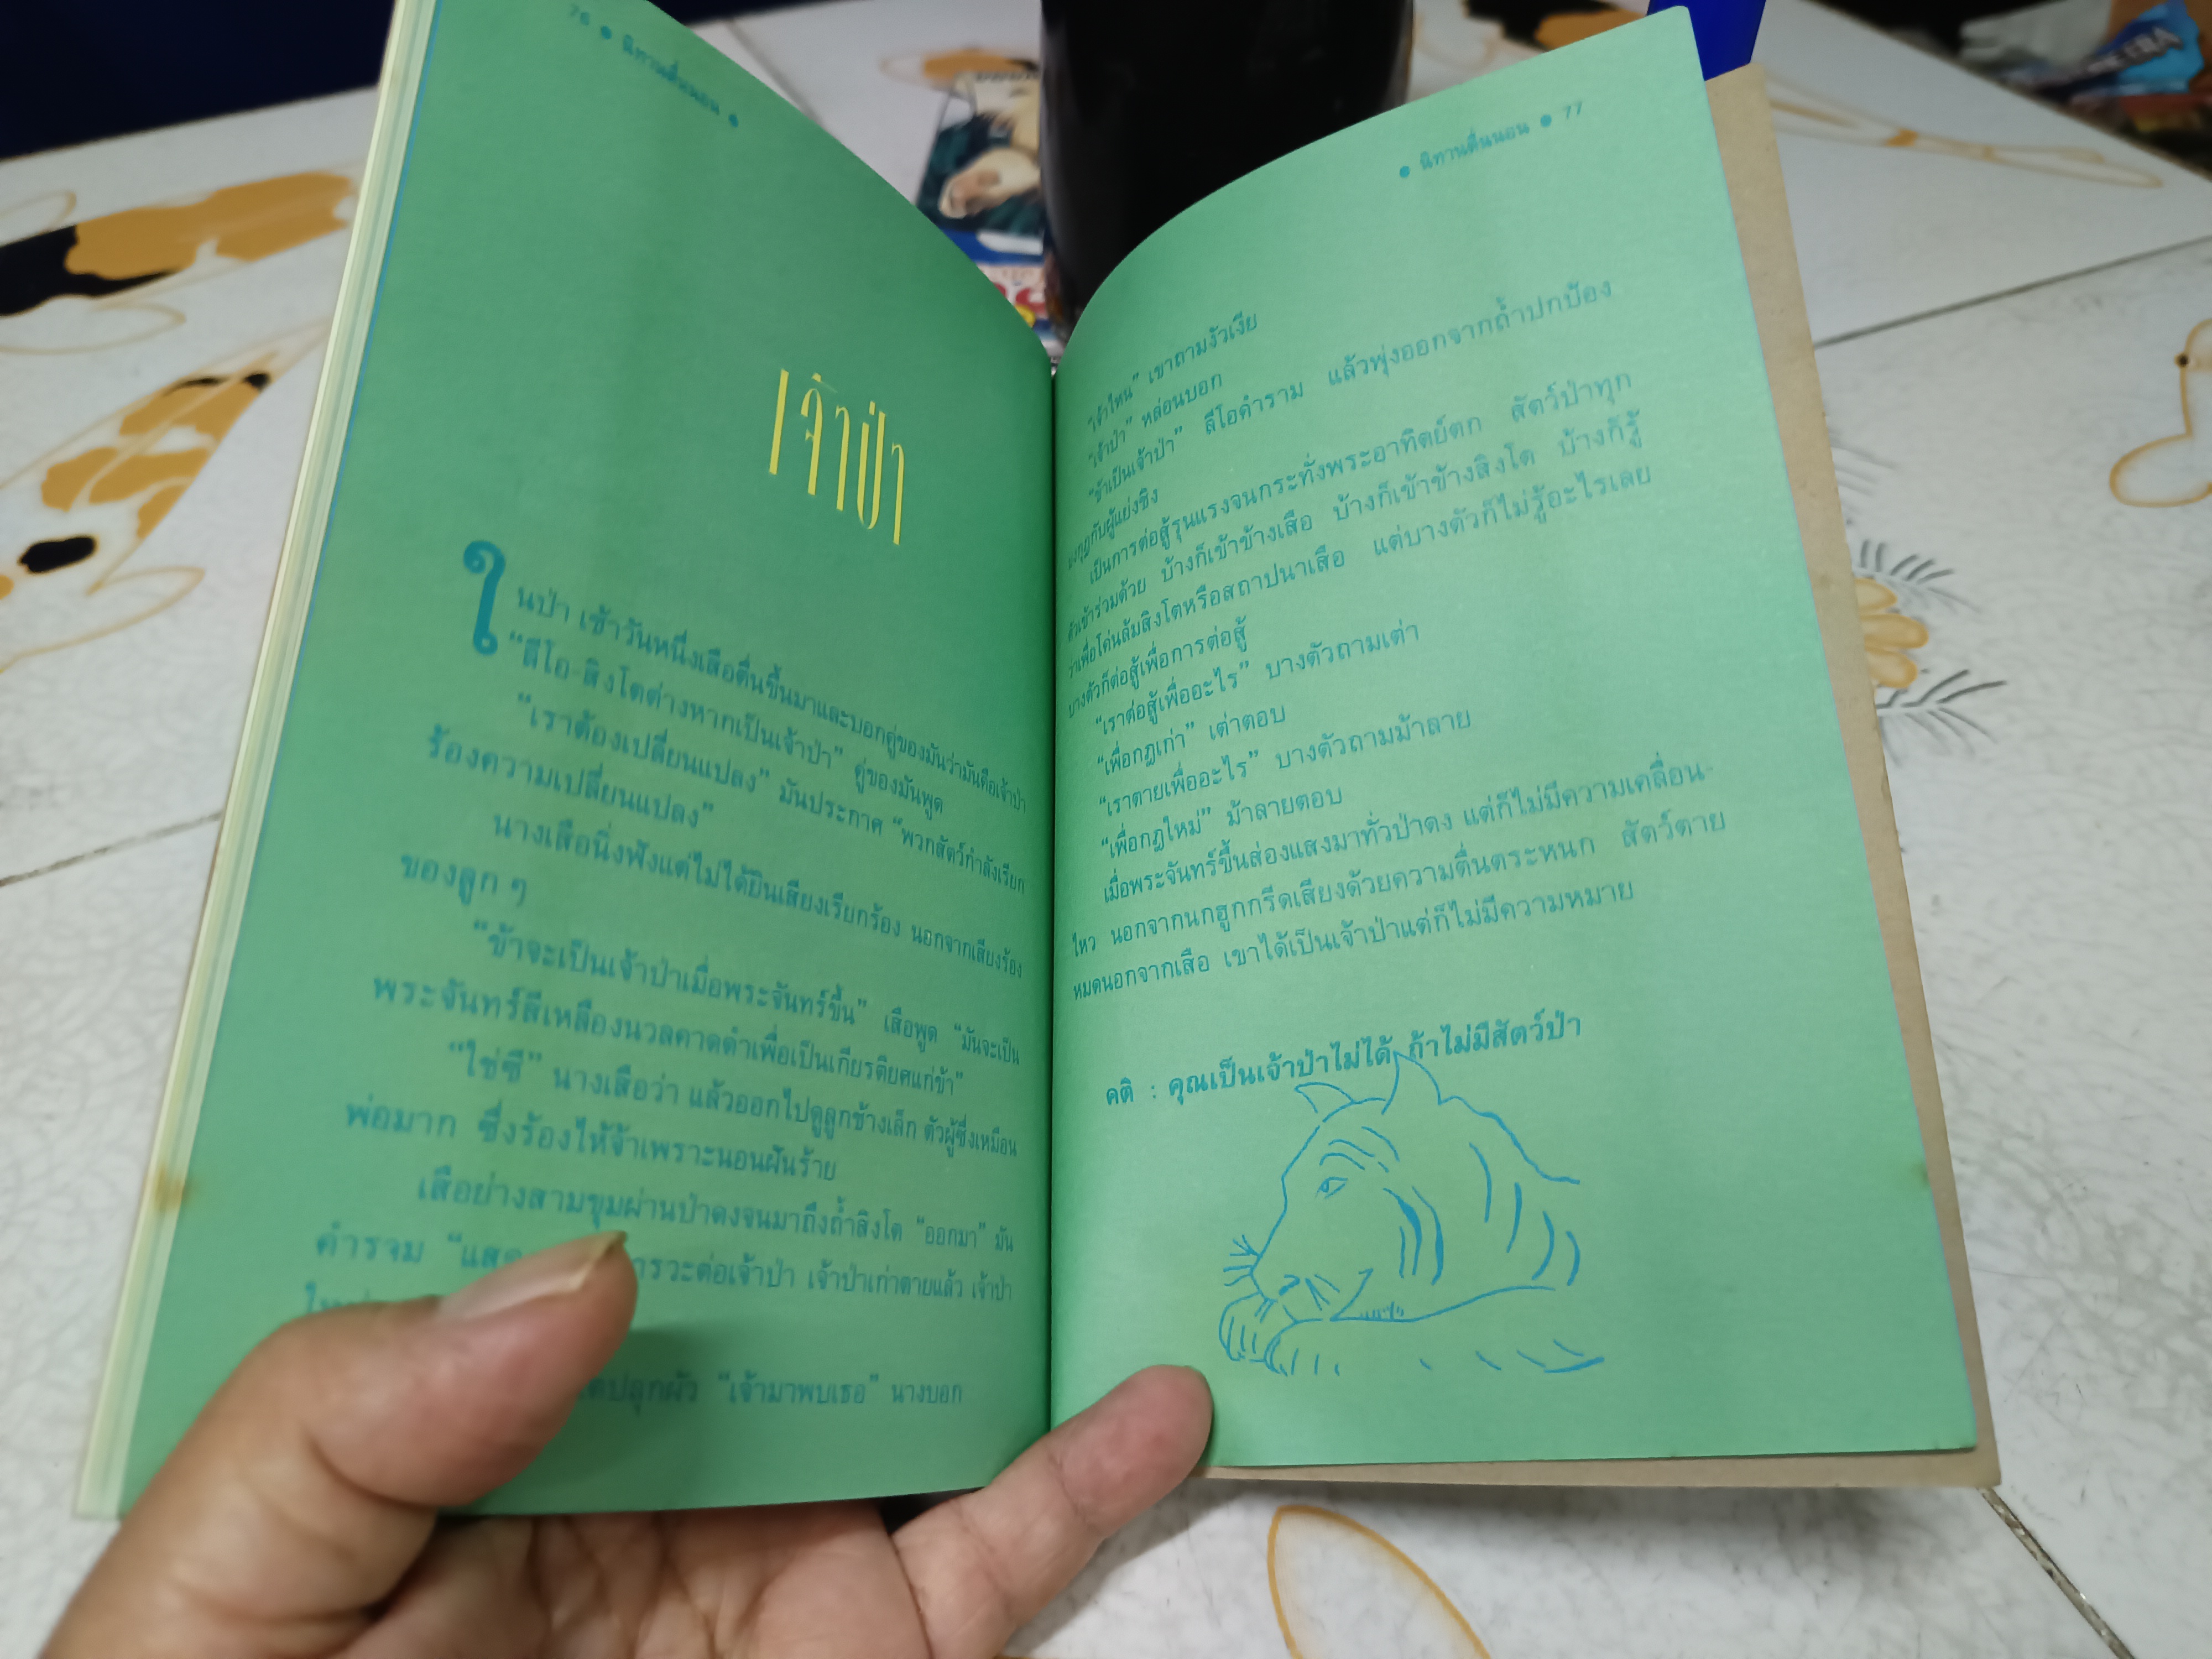 76 • นิทานตื่นนอน •
เจ้าป่า
ในป่า เช้าวันหนึ่งเสือตื่นขึ้นมาและบอกคู่ของมันว่ามันคือเจ้าป่า
“ลีโอ-สิงโตต่างหากเป็นเจ้าป่า” คู่ของมันพูด
“เราต้องเปลี่ยนแปลง” มันประกาศ “พวกสัตว์กำลังเรียก
ร้องความเปลี่ยนแปลง”
นางเสือนิ่งฟังแต่ไม่ได้ยินเสียงเรียกร้อง นอกจากเสียงร้อง
ของลูก ๆ
“ข้าจะเป็นเจ้าป่าเมื่อพระจันทร์ขึ้น” เสือพูด “มันจะเป็น
พระจันทร์สีเหลืองนวลคาดดำเพื่อเป็นเกียรติยศแก่ข้า”
“ใช่ซี” นางเสือว่า แล้วออกไปดูลูกช้างเล็ก ตัวผู้ซึ่งเหมือน
พ่อมาก ซึ่งร้องไห้จ้าเพราะนอนฝันร้าย
เสือย่างสามขุมผ่านป่าดงจนมาถึงถ้ำสิงโต “ออกมา” มัน
คำรจม “แสด รวะต่อเจ้าป่า เจ้าป่าเก่าตายแล้ว เจ้าป่า
ปลุกผัว “เจ้ามาพบเธอ” นางบอก
• นิทานตื่นนอน • 77
“เจ้าไหน” เขาถามงัวเงีย
“เจ้าป่า” หล่อนบอก
“ข้าเป็นเจ้าป่า” ลีโอคำราม แล้วพุ่งออกจากถ้ำปกป้อง
มงกุฎกับผู้แย่งชิง
เป็นการต่อสู้รุนแรงจนกระทั่งพระอาทิตย์ตก สัตว์ป่าทุก
ตัวเข้าร่วมด้วย บ้างก็เข้าข้างเสือ บ้างก็เข้าข้างสิงโต บ้างก็รู้
ว่าเพื่อโค่นล้มสิงโตหรือสถาปนาเสือ แต่บางตัวก็ไม่รู้อะไรเลย
บางตัวก็ต่อสู้เพื่อการต่อสู้
“เราต่อสู้เพื่ออะไร” บางตัวถามเต่า
“เพื่อกฎเก่า” เต่าตอบ
“เราตายเพื่ออะไร” บางตัวถามม้าลาย
“เพื่อกฎใหม่” ม้าลายตอบ
เมื่อพระจันทร์ขึ้นส่องแสงมาทั่วป่าดง แต่ก็ไม่มีความเคลื่อน-
ไหว นอกจากนกฮูกกรีดเสียงด้วยความตื่นตระหนก สัตว์ตาย
หมดนอกจากเสือ เขาได้เป็นเจ้าป่าแต่ก็ไม่มีความหมาย
คติ : คุณเป็นเจ้าป่าไม่ได้ ถ้าไม่มีสัตว์ป่า